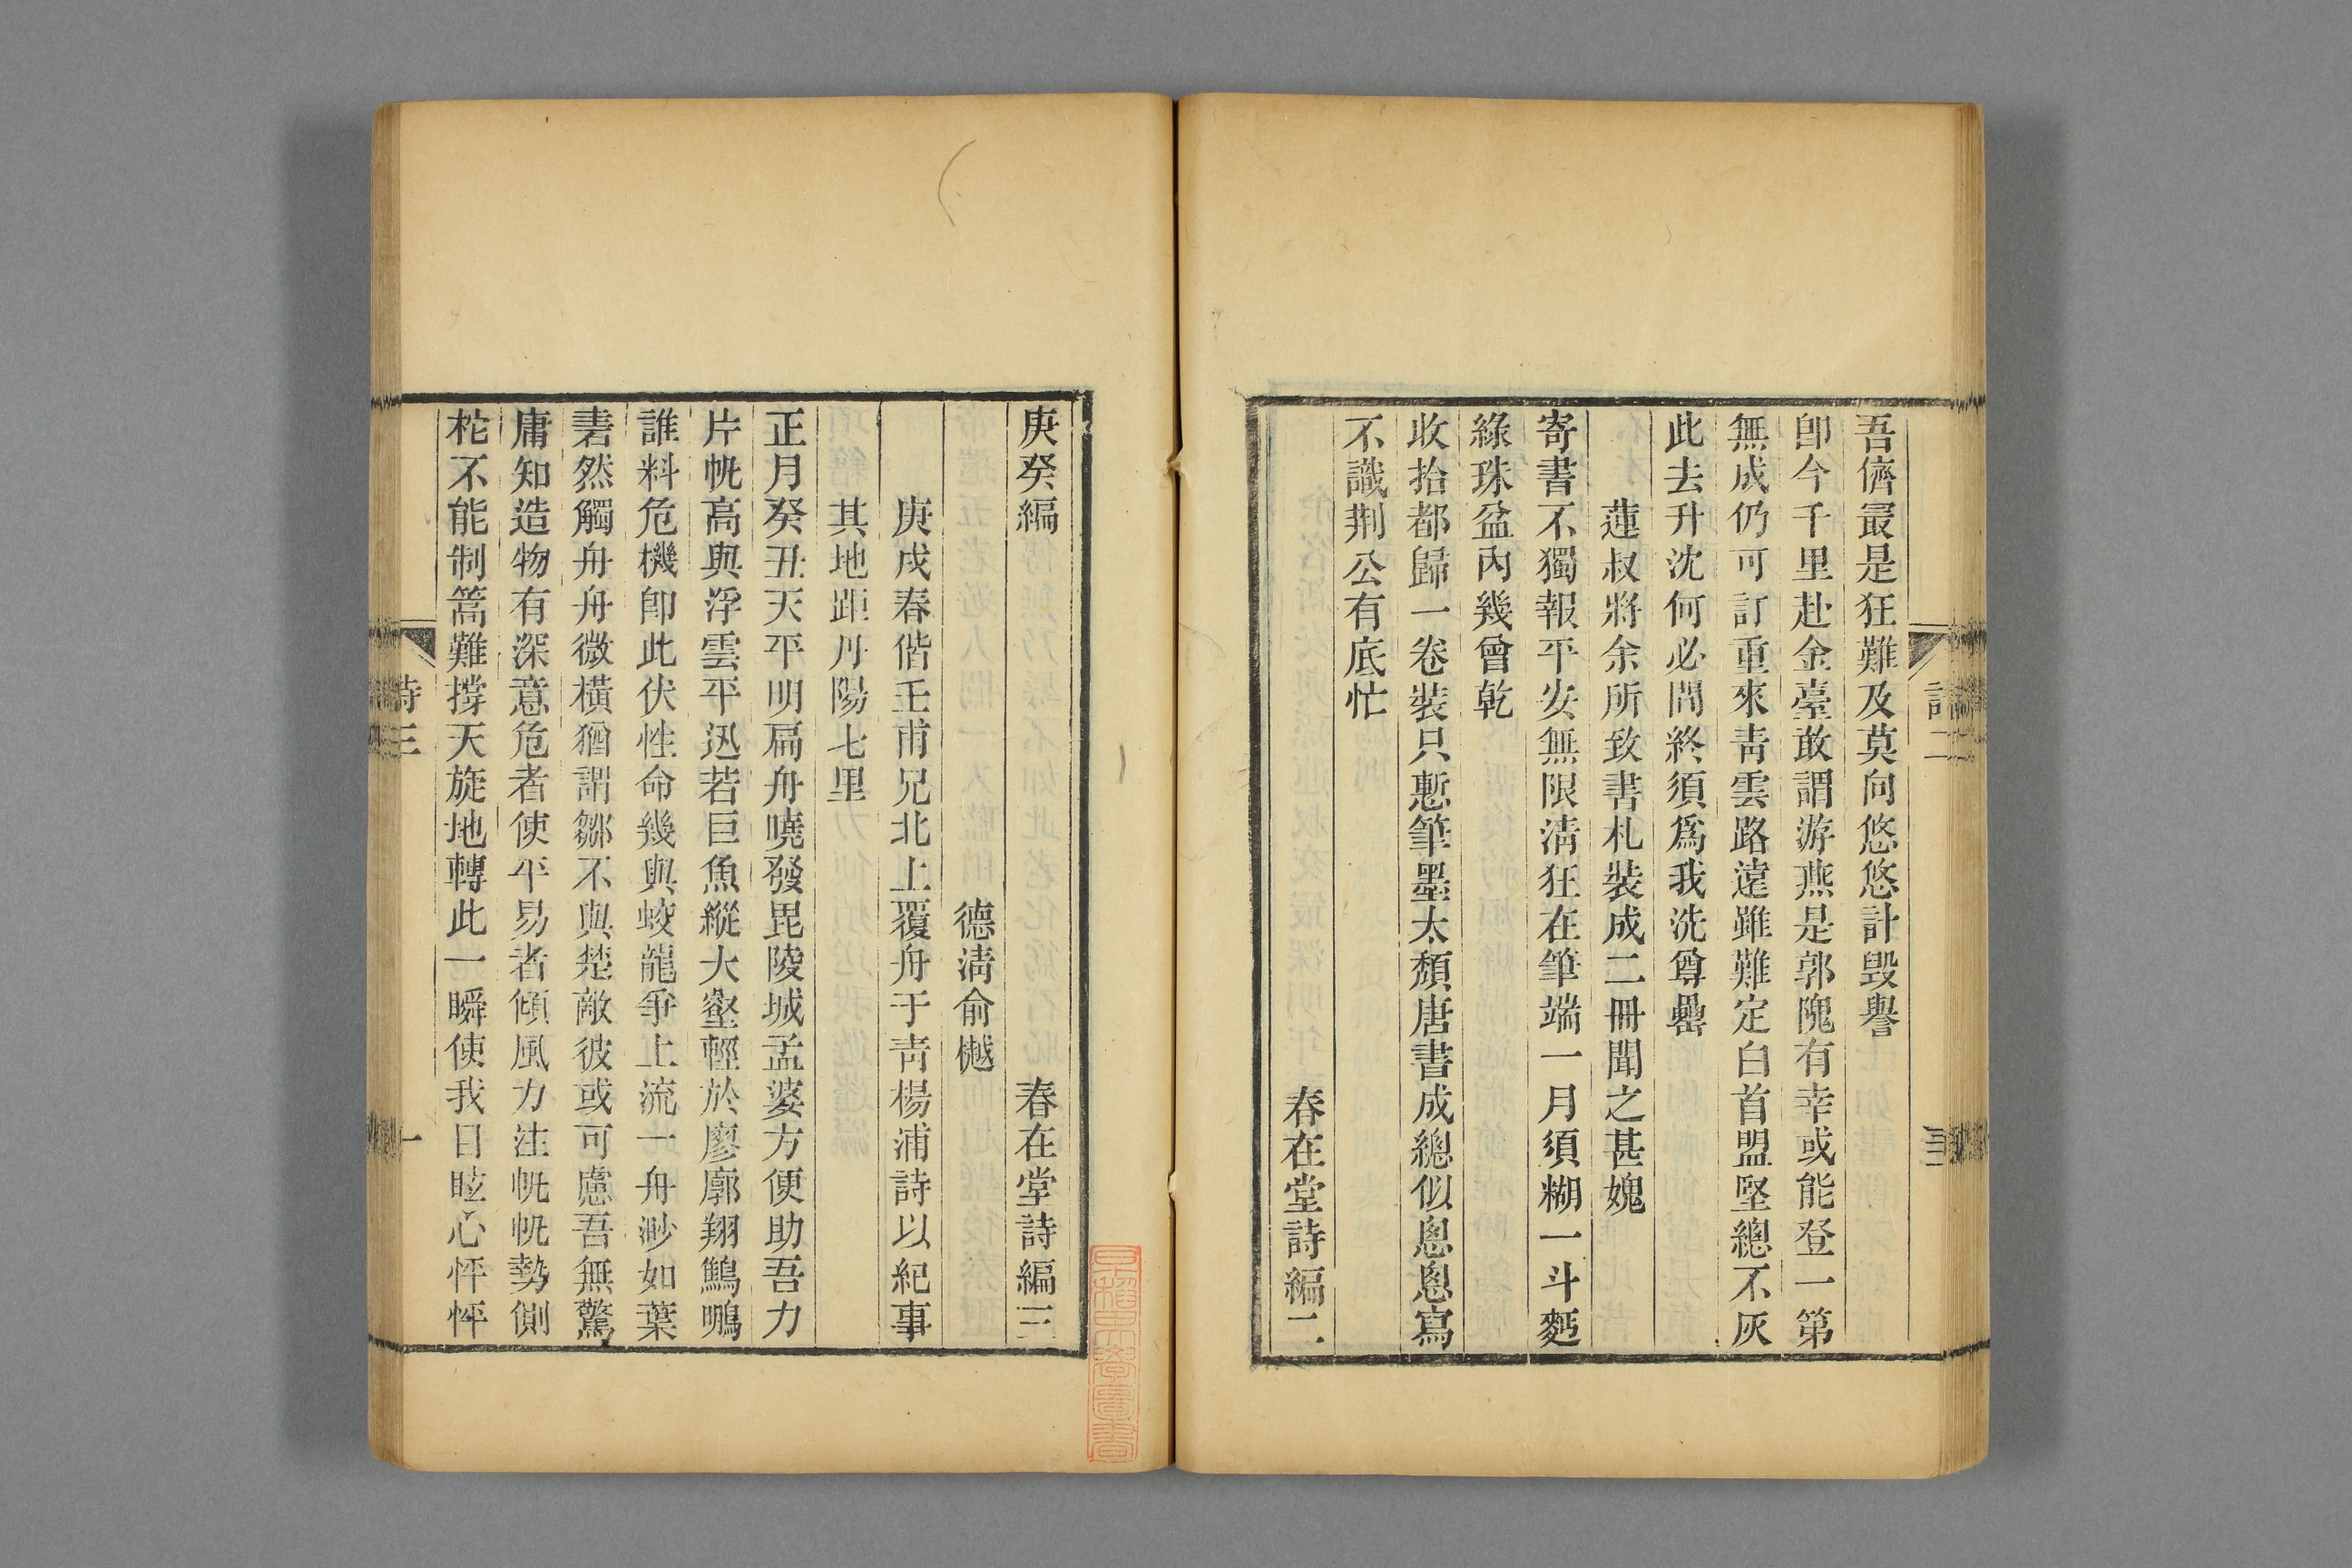 吾儕最是狂難及莫向悠悠計毀譽
卽今千里赴金臺敢謂游燕是郭隗有幸或能登一第
無成仍可訂重來靑雲路遠雖難定白首盟堅總不灰
此去升沈何必問終須爲我洗尊罍
蓮叔將余所致書札裝成二冊聞之甚媿
寄書不獨報平安無限淸狂在筆端一月須糊一斗麪
綠珠盆內幾曾乾
收拾都歸一卷裝只慙筆墨太頹唐書成總似悤悤寫
不識荆公有底忙
春在堂詩編二
庚癸編
春在堂詩編三
德淸俞樾
庚戌春偕壬甫兄北上覆舟于靑楊浦詩以紀事
其地距丹陽七里
正月癸丑天平明扁舟曉發毘陵城孟婆方便助吾力
片帆高與浮雲平迅若巨魚縱大壑輕於廖廓翔鷦鵬
誰料危機卽此伏性命幾與蛟龍爭上流一舟渺如葉
砉然觸舟舟微橫猶謂鄒不與楚敵彼或可慮吾無驚
庸知造物有深意危者使平易者傾風力注帆帆勢側
柁不能制篙難撐天旋地轉此一瞬使我目眩心怦怦
詩三
一